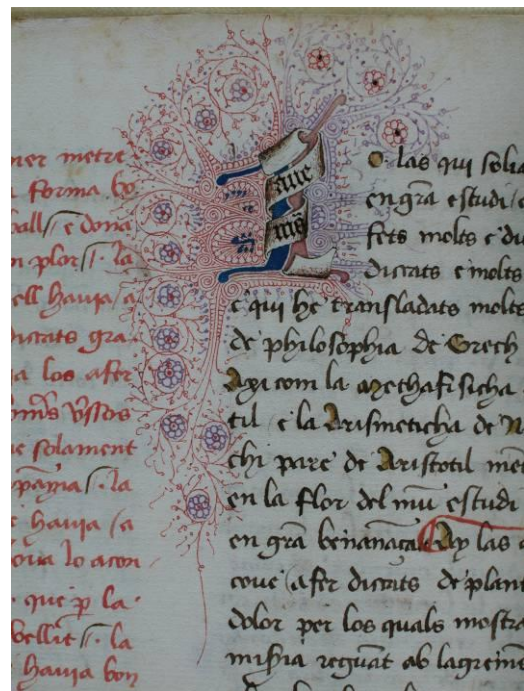 mer metre
forma bo
vall / e dona
n plor /. la
ell hauia / a
dictats gra
a los afer
e solament
la
e hauia / a
lo
que p̱ la
bellit /. la
hauia bon
aue
O las qui solia
en grā estudi / e
fets molts e di
dictats e molts
e qui he transladats molts
de philosophia de Grech
Axi com la methafisicha
til e la Arismeticha de N
chi pare de Aristotil mēt
en la flor del mū estudi
en grā benanāça Ay las
coue / afer dictats de plan
dolor per los quals mostra
ab lagreme